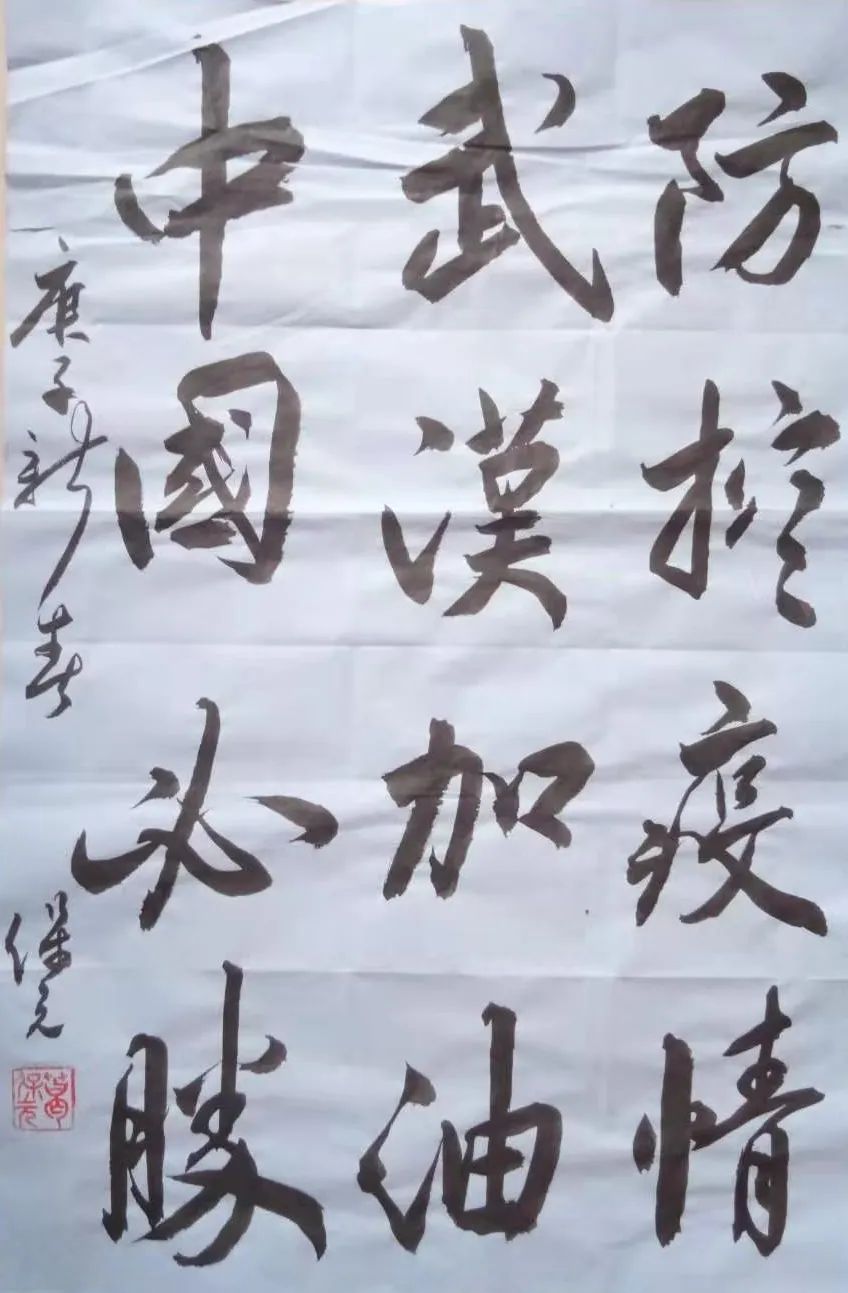 防控疫情
武漢加油
中國必勝
庚子新春
保元